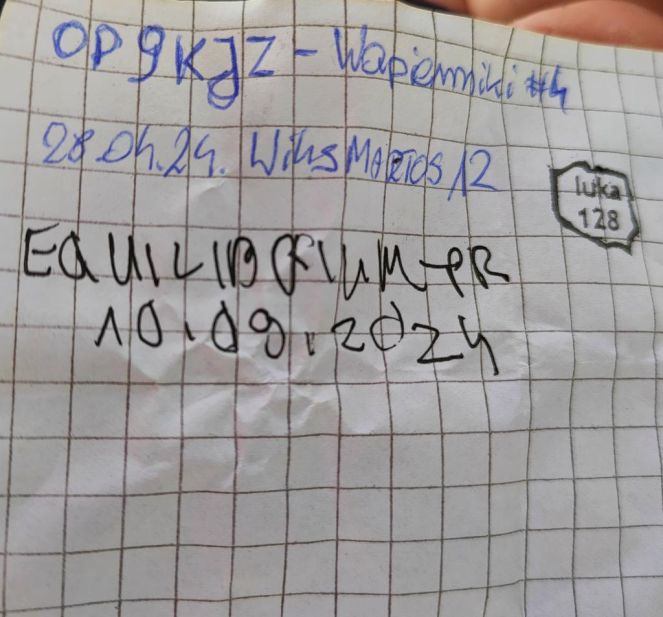 OP9KJZ - Wapienniki #4
28.04.24. WikSMARTOS12
luka
128
EQUILIBRIUM-PR
10.09.2024